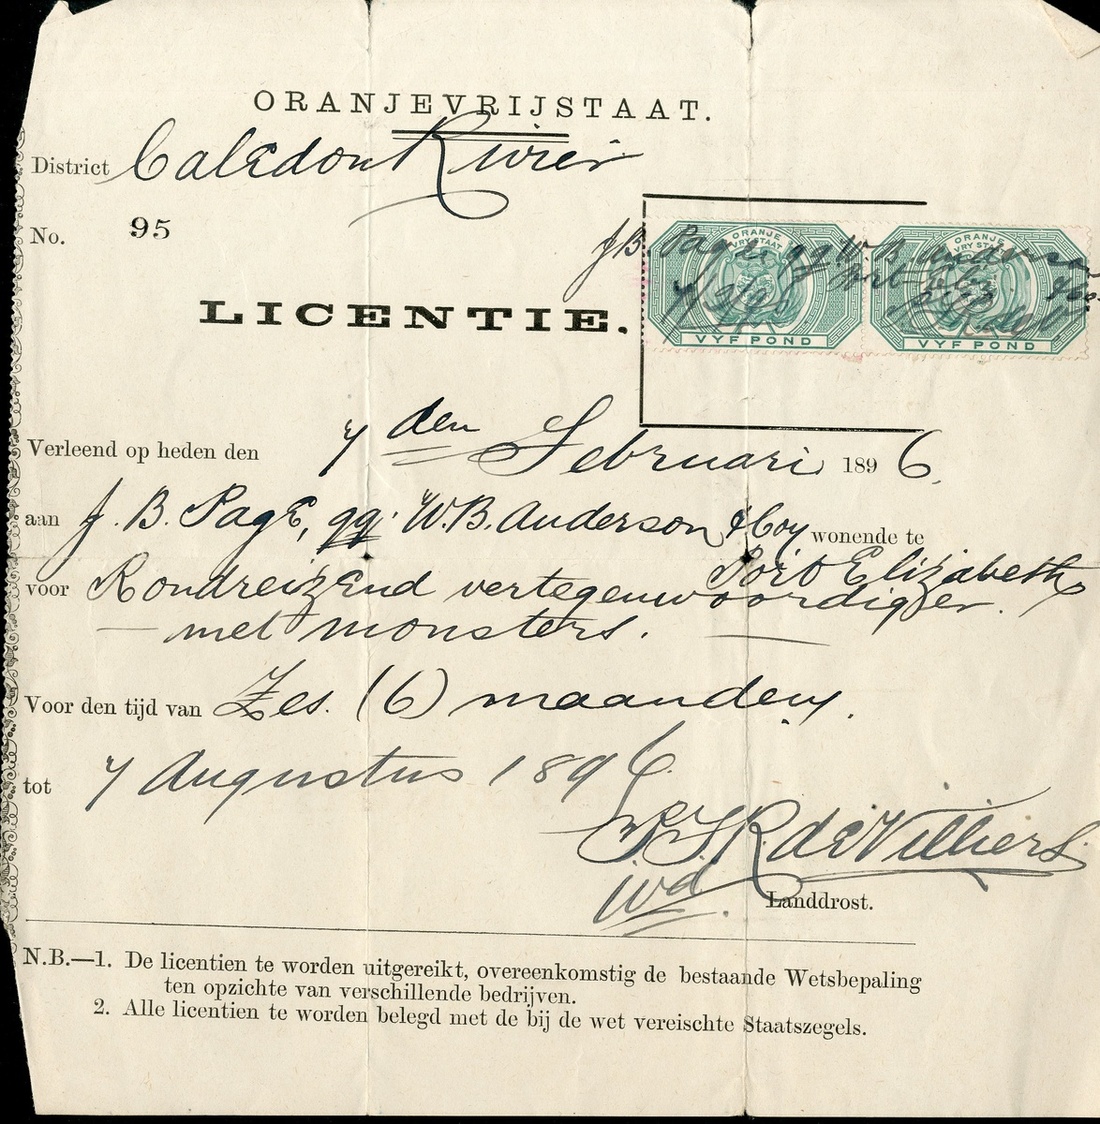 ORANJEVRIJSTAAT.
District Caledon Rivier
No. 95
J.B. Page qq. W.B. Anderson
7/2/96 Port Eliz.
ORANJE VRY STAAT
VYF POND
ORANJE VRY STAAT
VYF POND
LICENTIE.
Verleend op heden den 7 den Februari 1896.
aan J. B. Page, qq. W. B. Anderson & Coy wonende te
Port Elizabeth
voor Rondreizend vertegenwoordiger.
met monsters.
Voor den tijd van Zes. (6) maanden.
tot 7 Augustus 1896.
de Villiers
wd. Landdrost.
N.B.—1. De licentien te worden uitgereikt, overeenkomstig de bestaande Wetsbepaling
ten opzichte van verschillende bedrijven.
2. Alle licentien te worden belegd met de bij de wet vereischte Staatszegels.